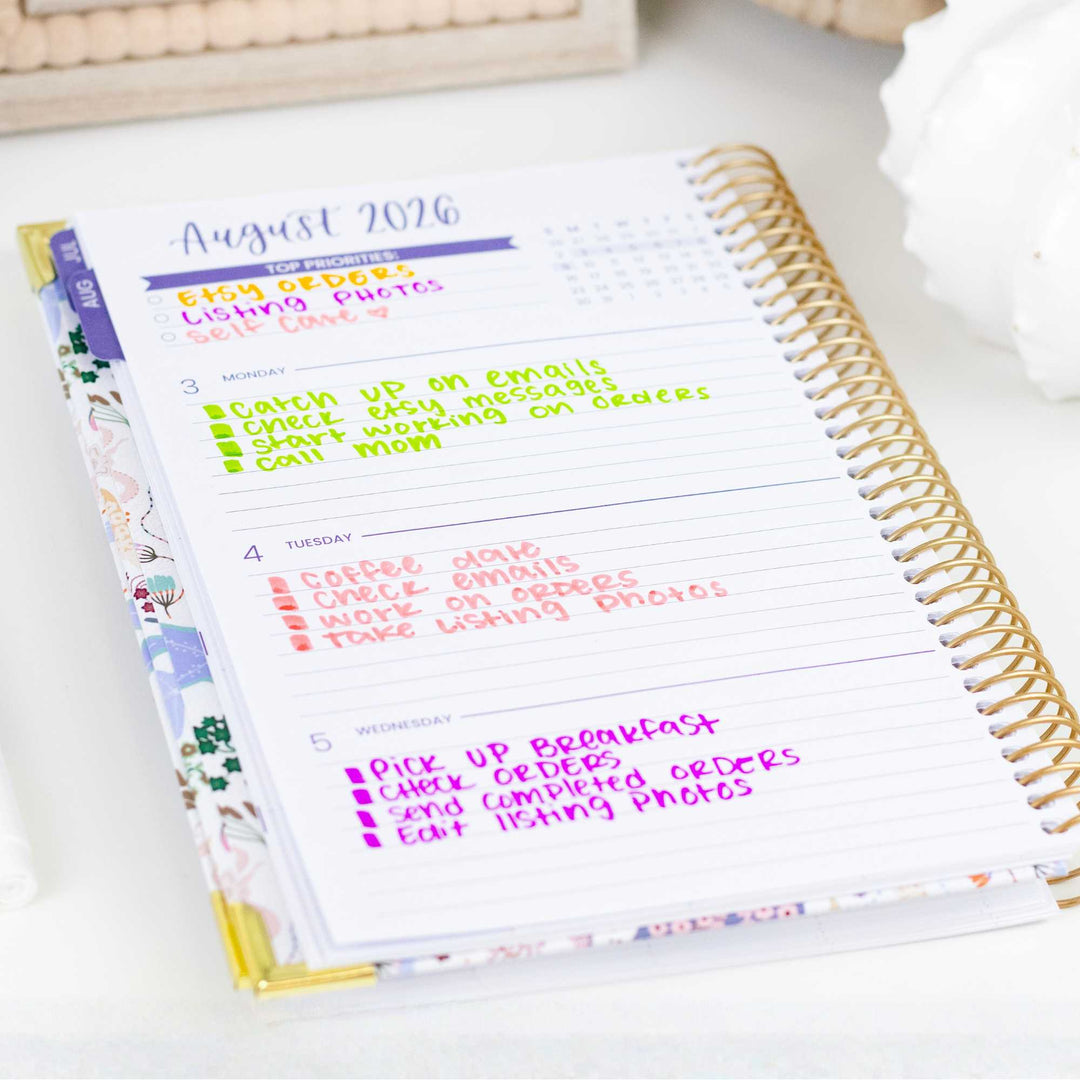 JUL
AUG
August 2026
TOP PRIORITIES:
Etsy ORDERS
Listing PHOTOS
Self Care
S M T W T F S
3 MONDAY
Catch UP on emails
Check etsy messages
Start working on ORDERS
Call mom
4 TUESDAY
Coffee date
Check emails
Work on ORDERS
Take Listing PHotos
5 WEDNESDAY
PICK UP BREAKfast
CHECK ORDERS
Send COMPLEted ORDERS
Edit listing PHotos